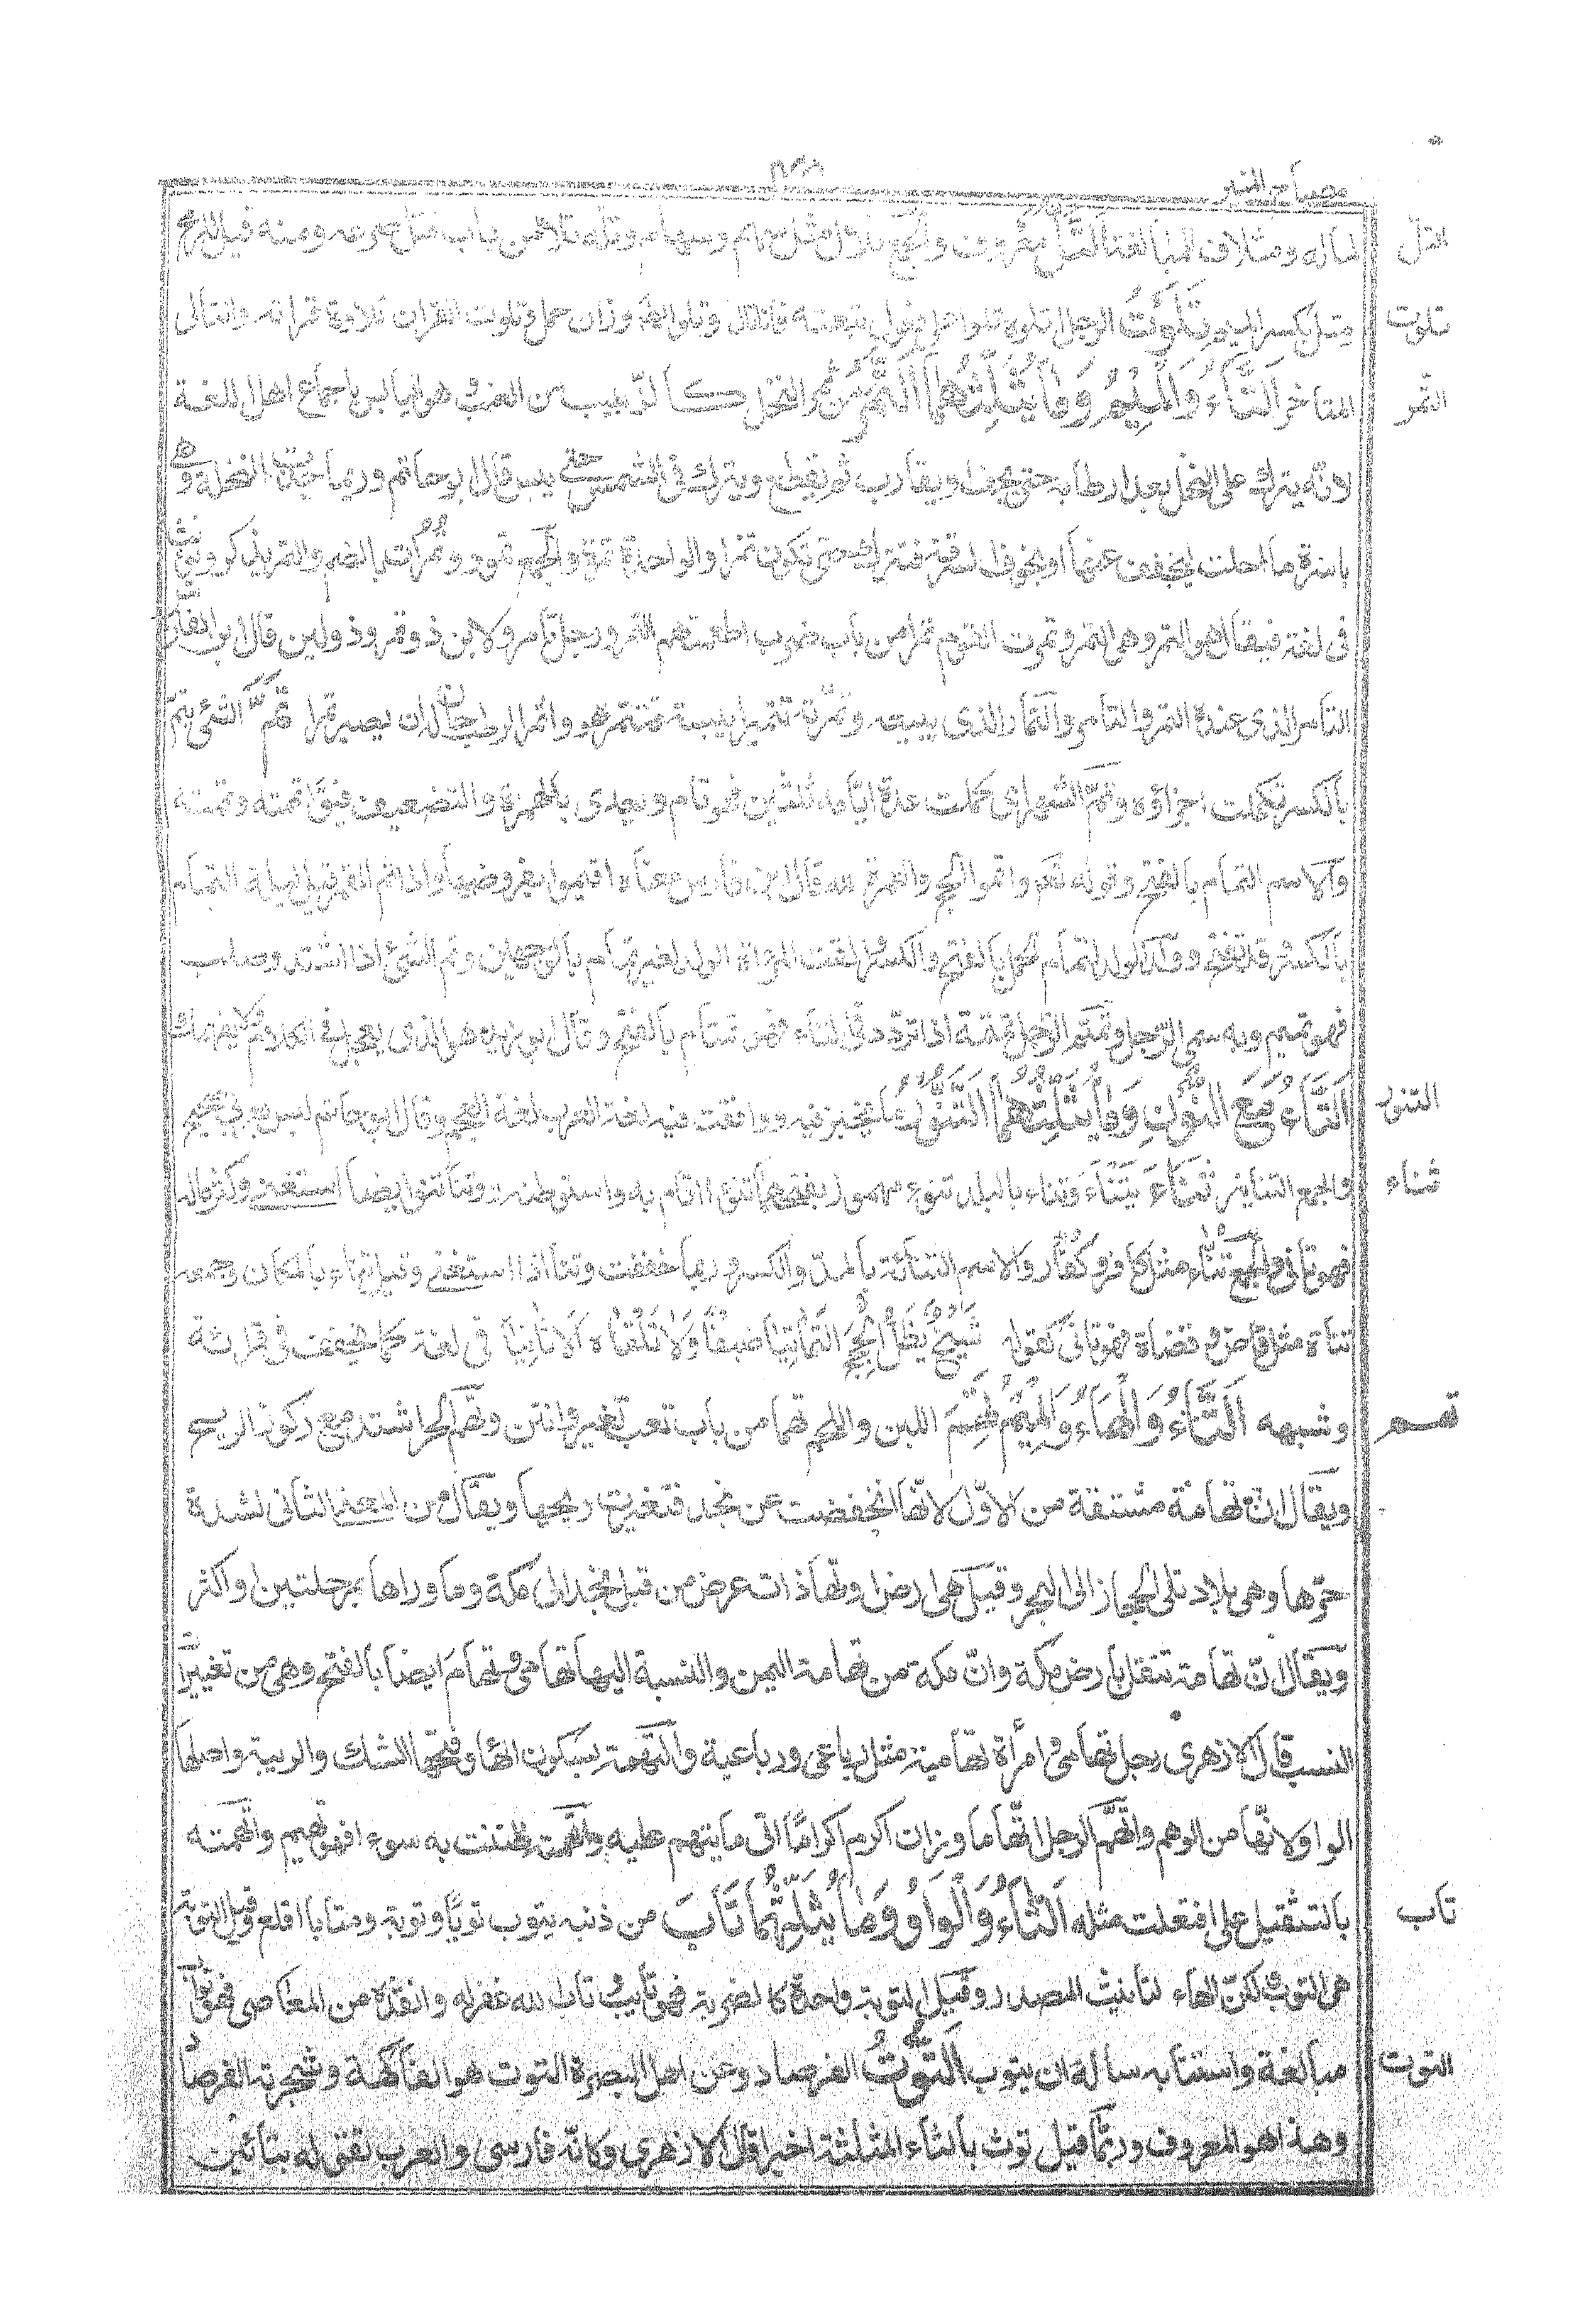 مصباح المنير
التل
لماله ومتلاف للمبالغة التل معروف والجمع تلال مثل سهم وسهام وتله تلا من باب قتل صرعه ومنه قيل للرمح
تلوت
متل بكسر الميم تلوت الرجل اتلوه تلوا على فعول تبعته فانا تال وتلو ايضا وزان حمل وتلوت القران تلاوة قراته والتالى
التمر
المتاخر التاء والميم وما يثلثهما التمر من ثمر النخل كالزبيب من العنب وهو اليابس باجماع اهل اللغة
لانه يترك على النخل بعد ارطابه حتى يجف او يقارب ثم يقطع ويترك فى الشمس حتى ييبس قال ابو حاتم وربما جدت النخلة وهى
باسرة ما احلت ليخفف عنها او لخوف السرقة فتترك حتى تكون تمرا والواحدة تمرة والجمع تمور وتمرات بالضم والتمر يذكر ويؤنث
فى لغة فيقال هو التمر وهى التمر وتمرت القوم تمرا من باب ضرب اطعمتهم التمر ورجل تامر ولابن ذو تمر وذو لبن قال ابن الفارس
التامر الذى عنده التمر والتامر والتمار الذى يبيعه وتمرته تتميرا يبسته فتتمر هو واتمر الرطب حان له ان يصير تمرا تم الشئ يتم
بالكسر تكملت اجزاؤه وتم الشهر اى كملت عدة ايامه ثلثين فهو تام ويعدى بالهمزة والتضعيف فيقا اتمته وتممته
والاسم التمام بالفتح وقوله تعم واتموا الحج والعمرة لله قال ابن فارس معناه اقيموا بفروضهما واذا تم القمر قيل ليلة التمام
بالكسر وقد تفتح وولد الولد لتمام الحمل بالفتح والكسر والقت المراة الولد لغير تمام بالوجهين وتم الشئ اذا اشتد وصلب
فهو تميم وبه سمى الرجل وتمتم الرجل تمتمة اذا تردد فى التاء فهو تمتام بالفتح وقال ابو زيد هو الذى يعجل فى الكلام ولا يفهمك
التنور
التاء مع النون وما يثلثهما التنور ما يخبز فيه ووافقت فيه لغة العرب لغة العجم وقال ابو حاتم ليس بعربى صحيح
تناء
والجمع التنانير تناء يتناء وتناء بالبلد تنوء مهموز بفتحهما تنوءا اقام به واستوطنه وتنا تنوا ايضا استغنى وكثر ماله
فهو تانئ والجمع تناء مثل كافر وكفار والاسم التنائة بالمد والكسر وربما خففت وتنا اذا استغنى وقيل تناء بالمكان وجمعه
تناة مثل قاض وقضاة فهو تانى كقوله شيخ يظل الحجج الثمانيا ضيفا ولا تلقاه الا ثانيا فى لغة كما يخفف فى قراءة
تهم
وشبهه التاء والهاء والميم تهم اللبن واللحم تهما من باب تعب تغير وانتن وتهم الحر اشتد مع ركود الريح
ويقال ان تهامة مشتقة من الاول لانها انخفضت عن نجد فتغيرت ريحها ويقال من المعنى الثانى لشدة
حرها وهى بلاد تلى الحجاز الى البحر وقيل هى ارض اولها ذات عرض من قبل نجد الى مكة وما وراها بمرحلتين او اكثر
ويقال ان تهامة تتصل بارض مكة وان مكه من تهامة اليمن والنسبة اليها تهامى وتهام ايضا بالفتح وهى من تغييرات
النسب قال الازهرى رجل تهامى وامرأة تهامية مثل رباعى ورباعية والتهمة بسكون الهاء وفتحها الشك والريبة واصلها
الواو لانها من الوهم واتهم الرجل اتهاما وزان اكرم اكراما اتى ما يتهم عليه واتهمته ظننت به سوءا فهو تهيم واتهمته
تاب
بالتثقيل على افتعلت مثله التاء والواو وما يثلثهما تاب من ذنبه يتوب توبا وتوبة ومتابا اقلع وقيل التوبة
هى التوب ولكن الهاء لتانيث المصدر وقيل التوبة واحدة كالضربة فهو تايب وتاب الله غفر له وانقذه من المعاصى فهو تواب
التوت
مبالغة واستتابه ساله ان يتوب التوت الفرصاد وعن اهل البصرة التوت هو الفاكهة وشجرته الفرصاد
وهذا هو المعروف وربما قيل توث بالثاء المثلثة اخيرا قال الازهرى وكانه فارسى والعرب تقوله بتائين